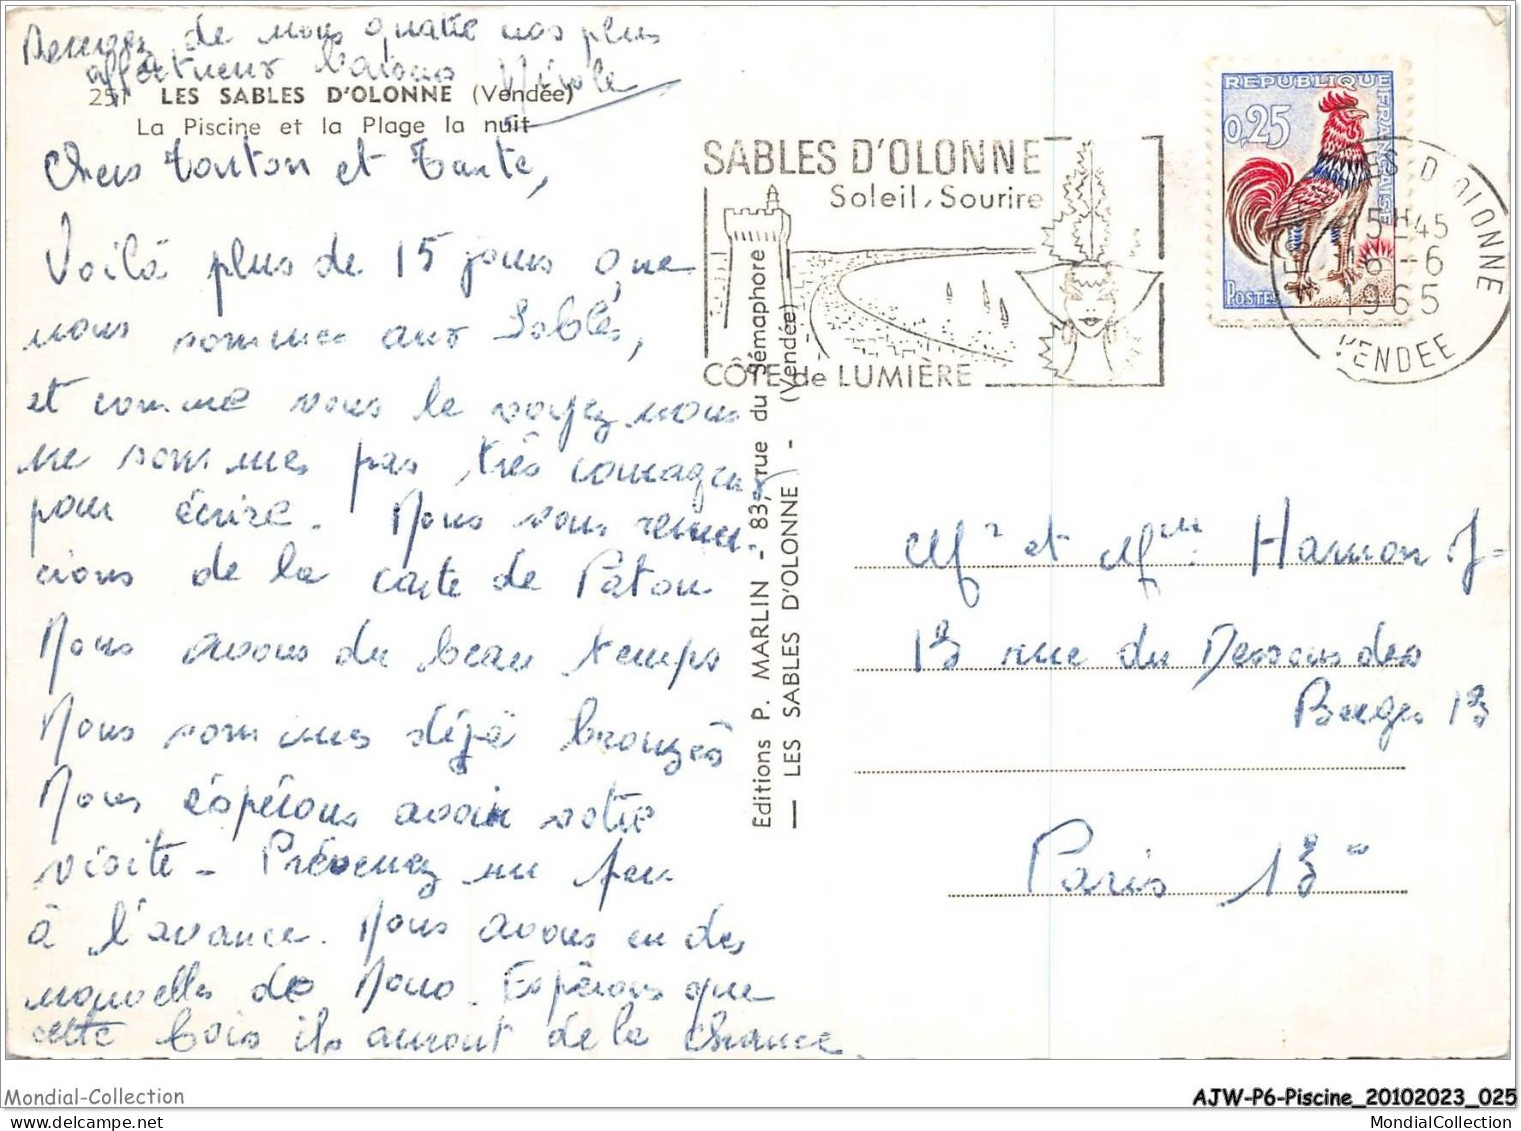 Recevez de nous quatre nos plus
affectueux baisers Nicole
251 LES SABLES D'OLONNE (Vendée)
La Piscine et la Plage la nuit
Chers Tonton et Tante,
Voilà plus de 15 jours que
nous sommes aux Sables,
et comme vous le voyez nous
ne sommes pas très courageux
pour écrire. Nous vous remer-
cions de la carte de Patou
Nous avons du beau temps
Nous sommes déjà bronzés
Nous espérons avoir votre
visite - Prévenez un peu
à l'avance. Nous avons eu des
nouvelles de Nono. Espérons que
cette fois ils auront de la chance.
SABLES D'OLONNE
Soleil, Sourire
CÔTE de LUMIÈRE
Editions P. MARLIN - 83, rue du Sémaphore
— LES SABLES D'OLONNE - (Vendée)
REPUBLIQUE FRANÇAISE
0,25
POSTES
LES SABLES D'OLONNE
15H45
16-6
1965
VENDEE
Mr et Mme Hamon J-
13 rue du Dessous des
Berges 13
Paris 13e
Mondial-Collection
AJW-P6-Piscine_20102023_025
MondialCollection